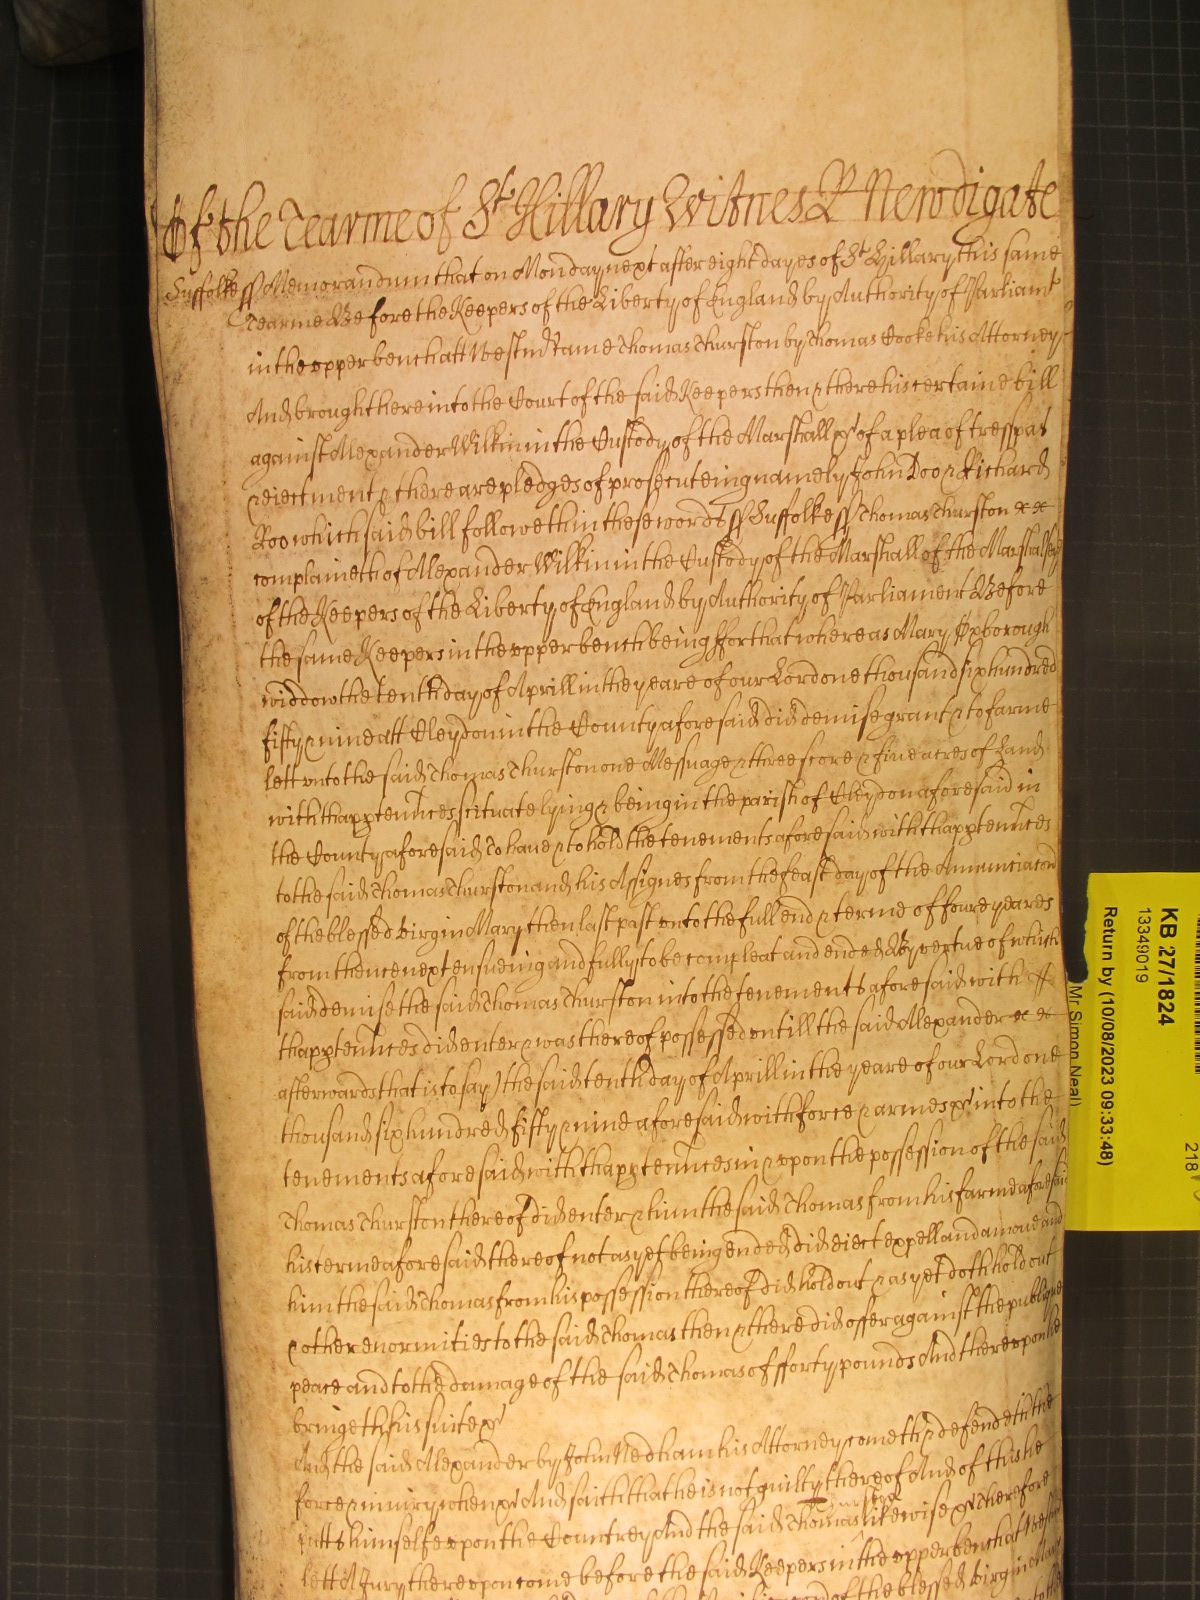 Of the Tearme of St Hillary Witnes R Newdigate
Suffolke ss Memorandum that on Monday next after eight dayes of St Hillary this same
Tearme Before the Keepers of the Liberty of England by Authority of Parliamt
in the upper bench att Westmr came Thomas Thurston by Thomas Cooke his Attorney
And brought here into the Court of the said Keepers then & there his certaine bill
against Alexander Wilkin in the Custody of the Marshall &c of a plea of trespas
& ejectment & there are pledges of prosecuteing namely John Doo & Richard
Roo which said bill followeth in these words ss Suffolke ss Thomas Thurston
complaineth of Alexander Wilkin in the Custody of the Marshall of the Marshalsey
of the Keepers of the Liberty of England by Authority of Parliament Before
the same Keepers in the upper bench being ffor that whereas Mary Oxborough
widdow the tenth day of Aprill in the yeare of our Lord one thousand six hundred
fifty & nine att Cleydon in the County aforesaid did demise grant & to farme
lett unto the said Thomas Thurston one Messuage & threescore & five acres of Land
with thapptennces scituate lying & being in the parish of Cleydon aforesaid in
the County aforesaid To have & to hold the tenements aforesaid with thapptennces
to the said Thomas Thurston and his Assignes from the feast day of the Annunciacon
of the blessed virgin Mary then last past unto the full end & terme of foure yeares
from thence next ensueing and fully to be compleat and ended By vertue of which
said demise the said Thomas Thurston into the tenements aforesaid with
thapptennces did enter & was thereof possessed untill the said Alexander
afterwards that is to say) the said tenth day of Aprill in the yeare of our Lord one
thousand six hundred fifty & nine aforesaid with force & armes &c into the
tenements aforesaid with thapptennces in & upon the possession of the said
Thomas Thurston thereof did enter & him the said Thomas from his farme aforesaid
his terme aforesaid thereof not as yet being ended did eiect expell and amove and
him the said Thomas from his possession thereof did hold out & as yet doth hold out
& other enormities to the said Thomas then & there did offer against the publique
peace and to the damage of the said Thomas of fforty pounds And thereupon he
bringeth his suite &c
And the said Alexander by John Nedham his Attorney cometh & defendeth the
force & iniury when &c And saith that he is not guilty thereof And of this he
putts himselfe upon the Countrey And the said Thomas Thurston likewise &c Therefore
lett A Jury thereupon come before the said Keepers in the upper bench att
of the blessed virgin Mary
KB 27/1824
13349019
Return by (10/08/2023 09:33:48)
Mr Simon Neal)
218